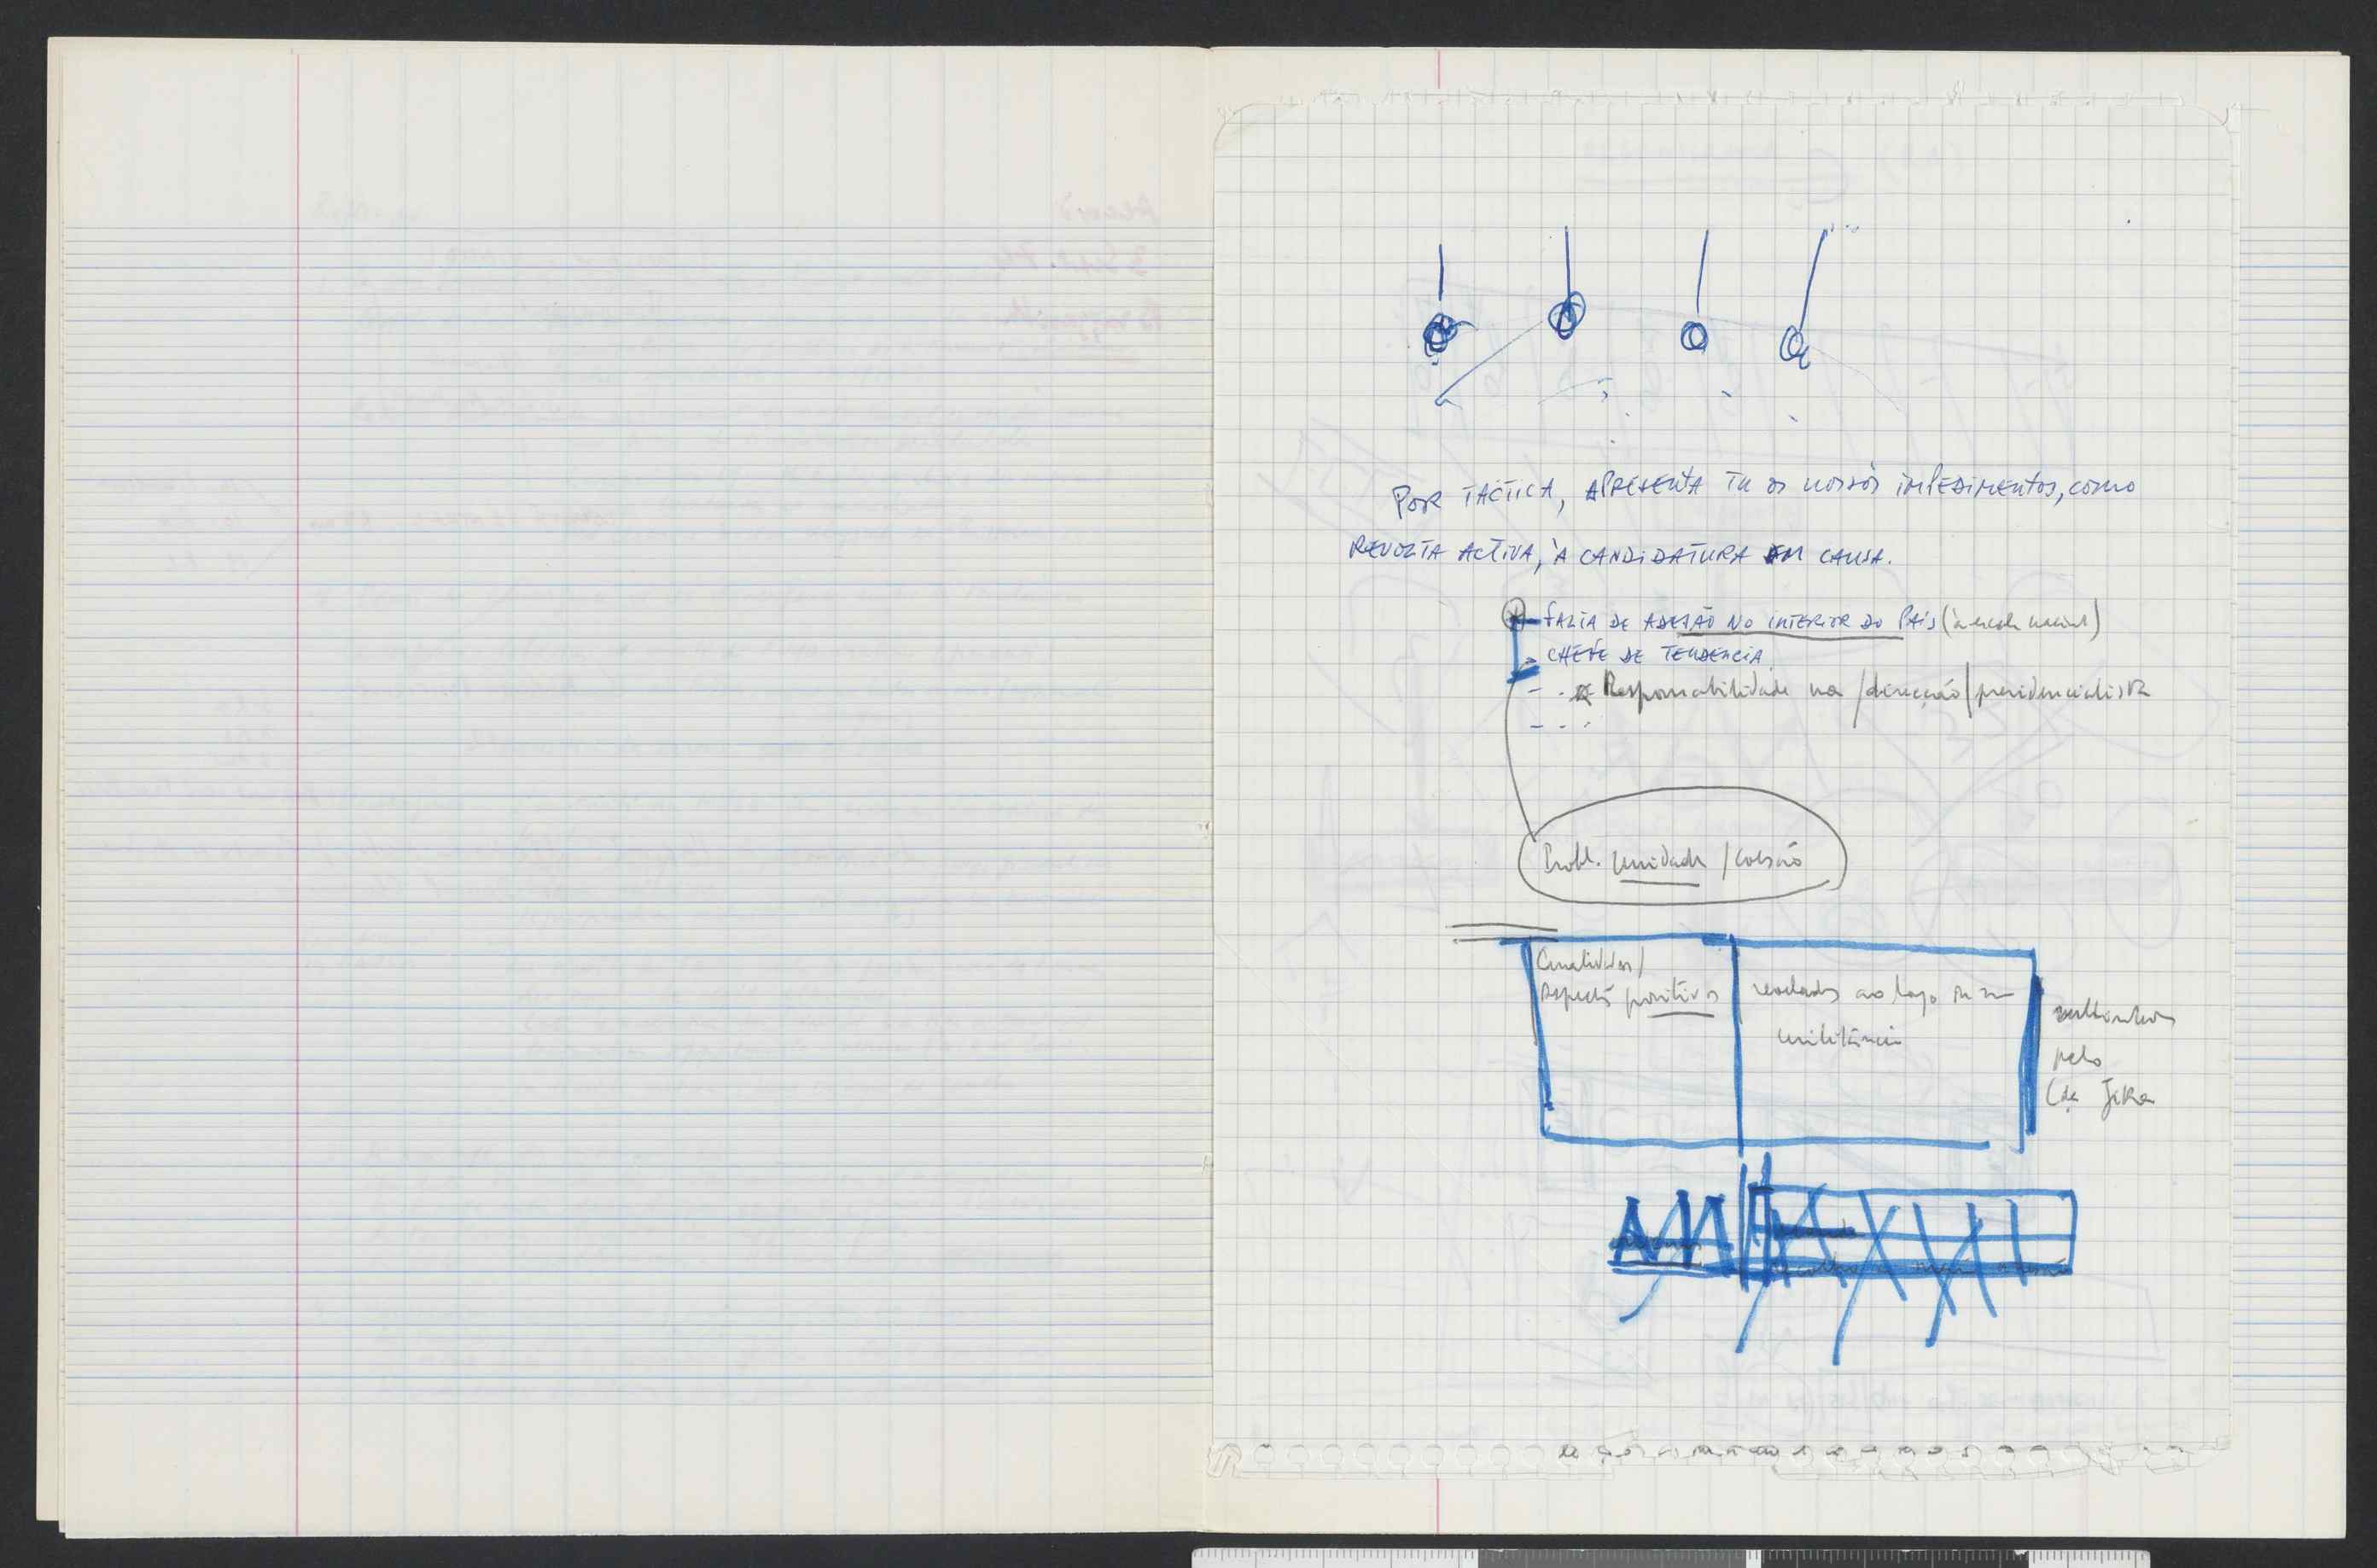 POR TÁCTICA, APRESENTA TU OS NOSSOS IMPEDIMENTOS, COMO
REVOLTA ACTIVA, À CANDIDATURA EM CAUSA.
- FALTA DE ADESÃO NO INTERIOR DO PAÍS (à escala nacional)
- CHEFE DE TENDENCIA
- .. Responsabilidade na /direcção/ presidencialista
- ...
Probl. Unidade / Coesão
Qualidades /
Aspectos positivos
revelados ao longo da
militância
pelo
Cde Jika